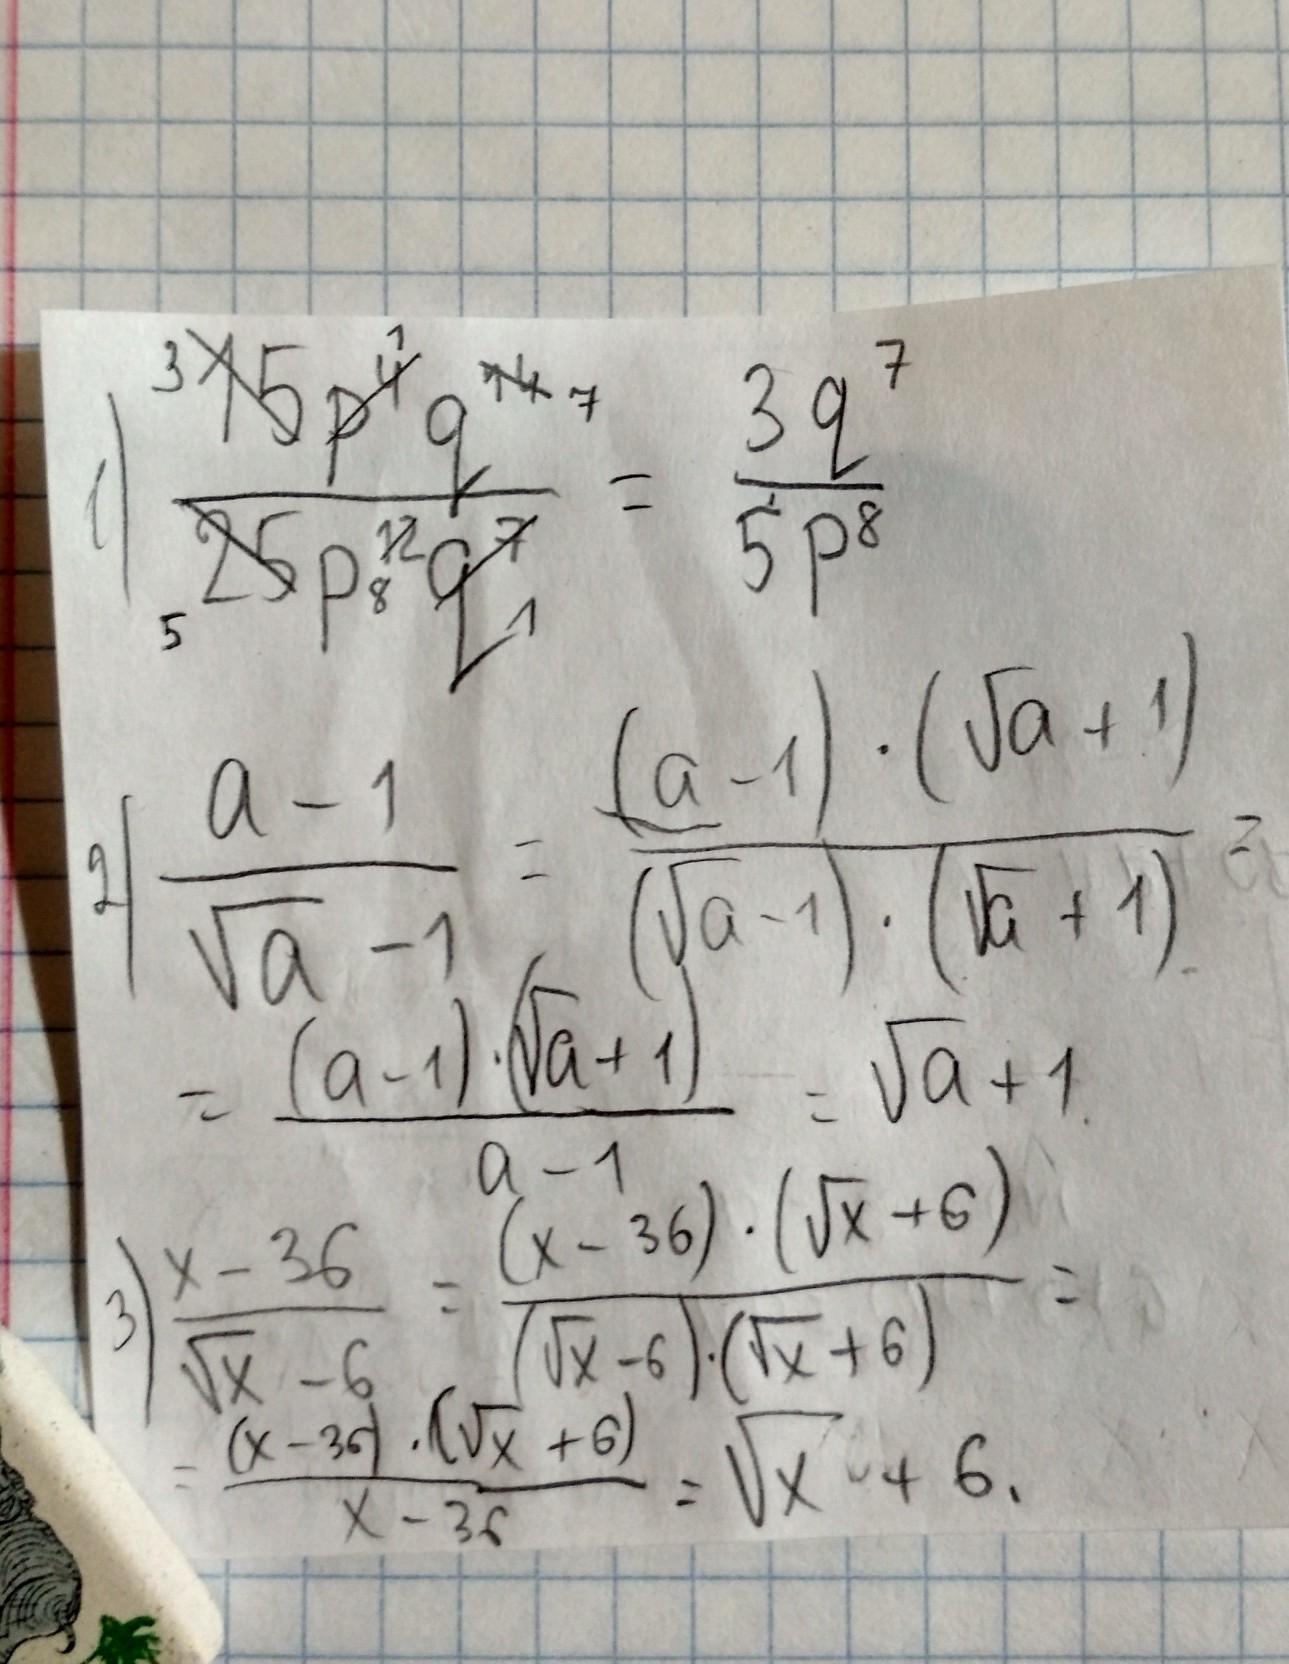 1) 3 15p⁴ 1 q¹⁴ 7 / 25 5 p¹² 8 q⁷ 1 = 3q⁷ / 5p⁸
2) a - 1 / √a - 1 = (a - 1) · (√a + 1) / (√a - 1) · (√a + 1) =
= (a - 1) · (√a + 1) / a - 1 = √a + 1
3) x - 36 / √x - 6 = (x - 36) · (√x + 6) / (√x - 6) · (√x + 6) =
= (x - 36) · (√x + 6) / x - 36 = √x + 6.